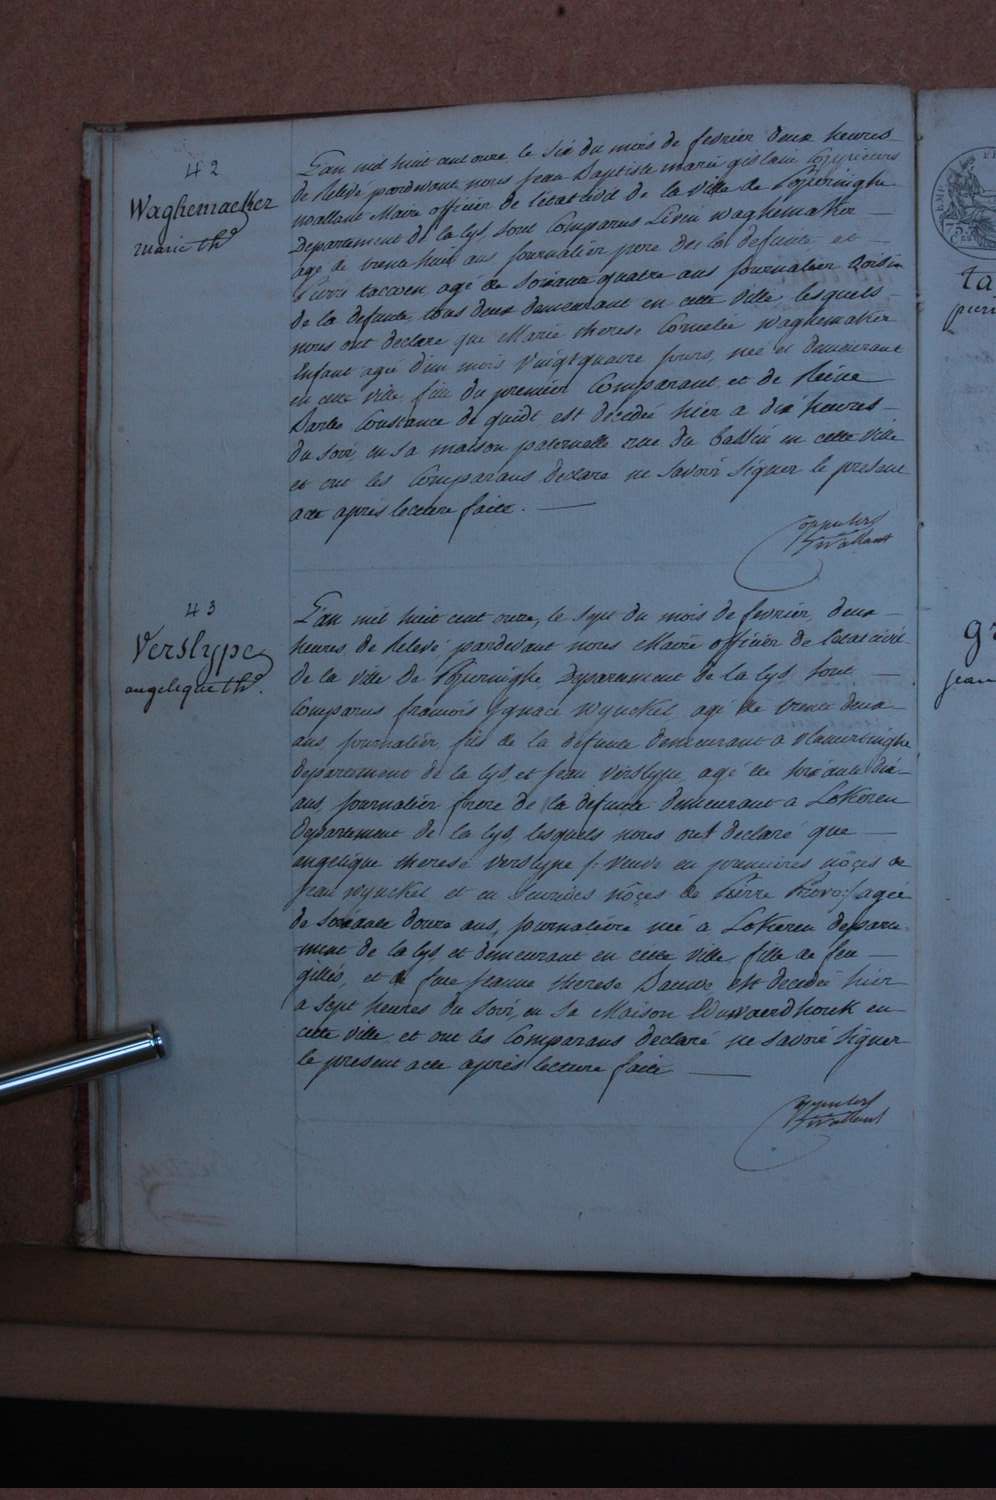 42
Waghemaeker
marie th.e
L'an mil huit cent onze, le six du mois de fevrier deux heures
de Relevé pardevant nous jean Baptiste marie gislain
Maire officier de l'etat civil de la ville de Poperinghe
Departement de la lys, sont Comparus Livin Waghemaker
agé de trente huit ans journalier pere de la defunte et
Pierre agé de soixante quatre ans journalier voisin
de la defunte tous deux demeurant en cette ville, lesquels
nous ont declaré que Marie therese Cornelie Waghemaker
Enfant agée d'un mois vingt quatre jours, née et demeurant
en cette ville fille du premier Comparant et de Reine
Barbe Constance de quidt, est decedée hier a dix heures
du soir, en sa maison paternelle rue du Bassin en cette ville
et ont les Comparans declaré ne savoir signer le present
acte après lecture faite.
43
Verslype
angelique th.e
L'an mil huit cent onze, le sept du mois de fevrier, deux
heures de Relevé, pardevant nous Maire officier de l'etat civil
de la ville de Poperinghe, Departement de la lys, sont
Comparus francois Ignace Wyuckel, agé de trente deux
ans, journalier, fils de la defunte demeurant a vlamertinghe
departement de la lys, et jean Verslype, agé de soixante dix
ans, journalier frere de la defunte demeurant a Lokeren
Departement de la lys, lesquels nous ont declaré que
angelique therese Verslype (: veuve en premieres nôçes de
jean Wyuckel et en secondes nôçes de Pierre Prévo :) agée
de soixante douze ans, journalière née a Lokeren departe-
ment de la lys et demeurant en cette ville fille de feu
gilles, et de feue jeanne therese Dauwe est decedée hier
a sept heures du soir, en sa Maison Eduwaerdhoek en
cette ville, et ont les Comparans declaré ne savoir signer
le present acte après lecture faite
ta
gr
jean